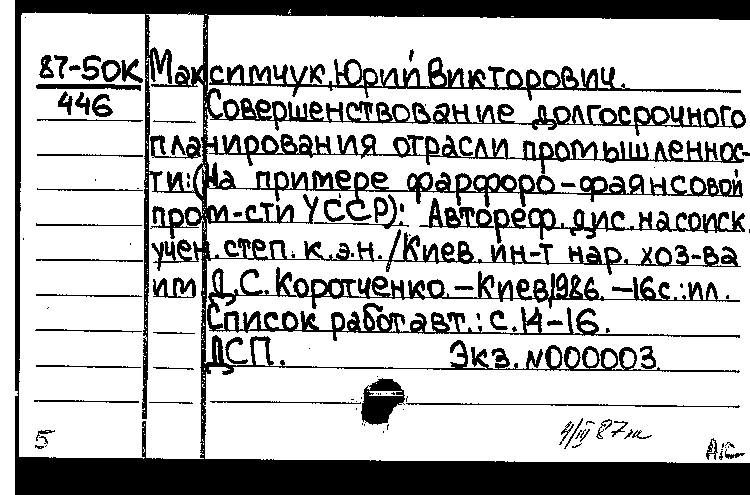 87-50К Максимчук, Юрий Викторович.
446 Совершенствование долгосрочного
планирования отрасли промышленнос-
ти: (На примере фарфоро-фаянсовой
пром-сти УССР): Автореф. дис. на соиск.
учен. степ. к.э.н. /Киев. ин-т нар. хоз-ва
им. Д.С. Коротченко. – Киев, 1986. – 16с.: ил.
Список работ авт.: с. 14-16.
ДСП. Экз. N000003.
5 4/IV 87